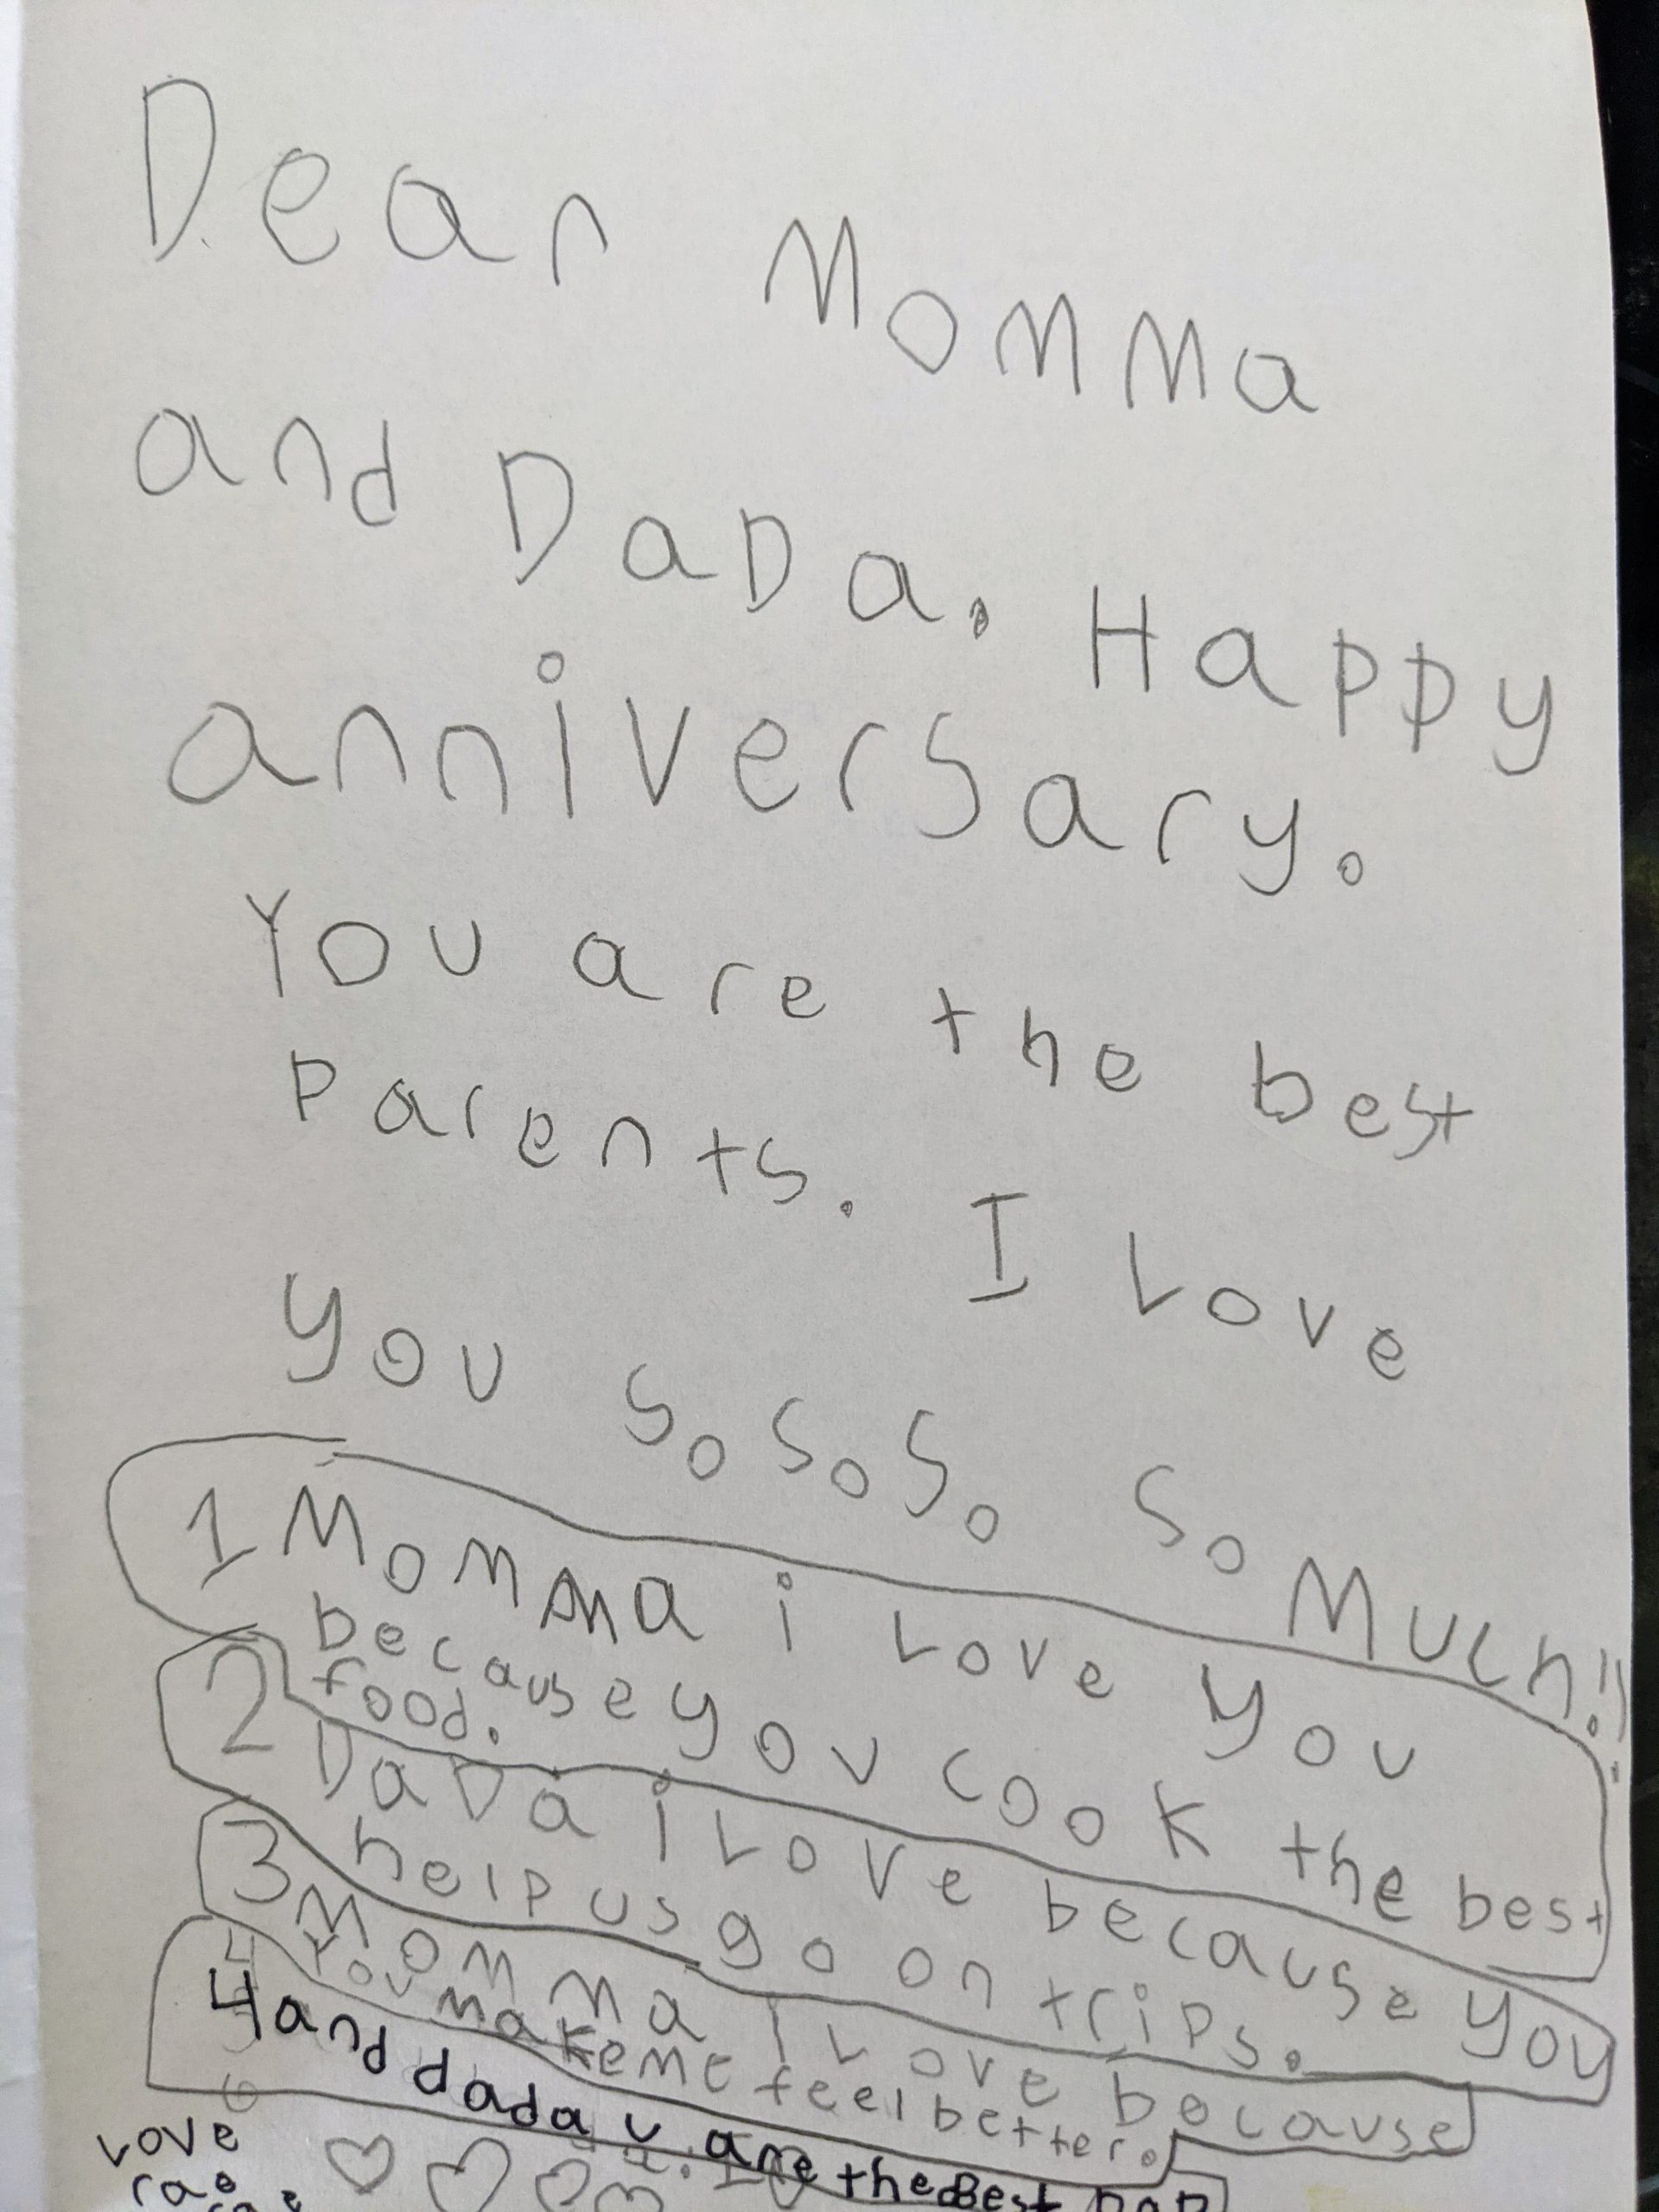 Dear Momma
and DaDa. Happy
anniversary.
You are the best
Parents. I Love
you so so so so Much!!
1 Momma i Love you
because you cook the best
food.
2 DaDa i Love because you
help us go on trips.
3 Momma I Love because
You make me feel better.
4 and dada u are the Best DaD
Love
rae